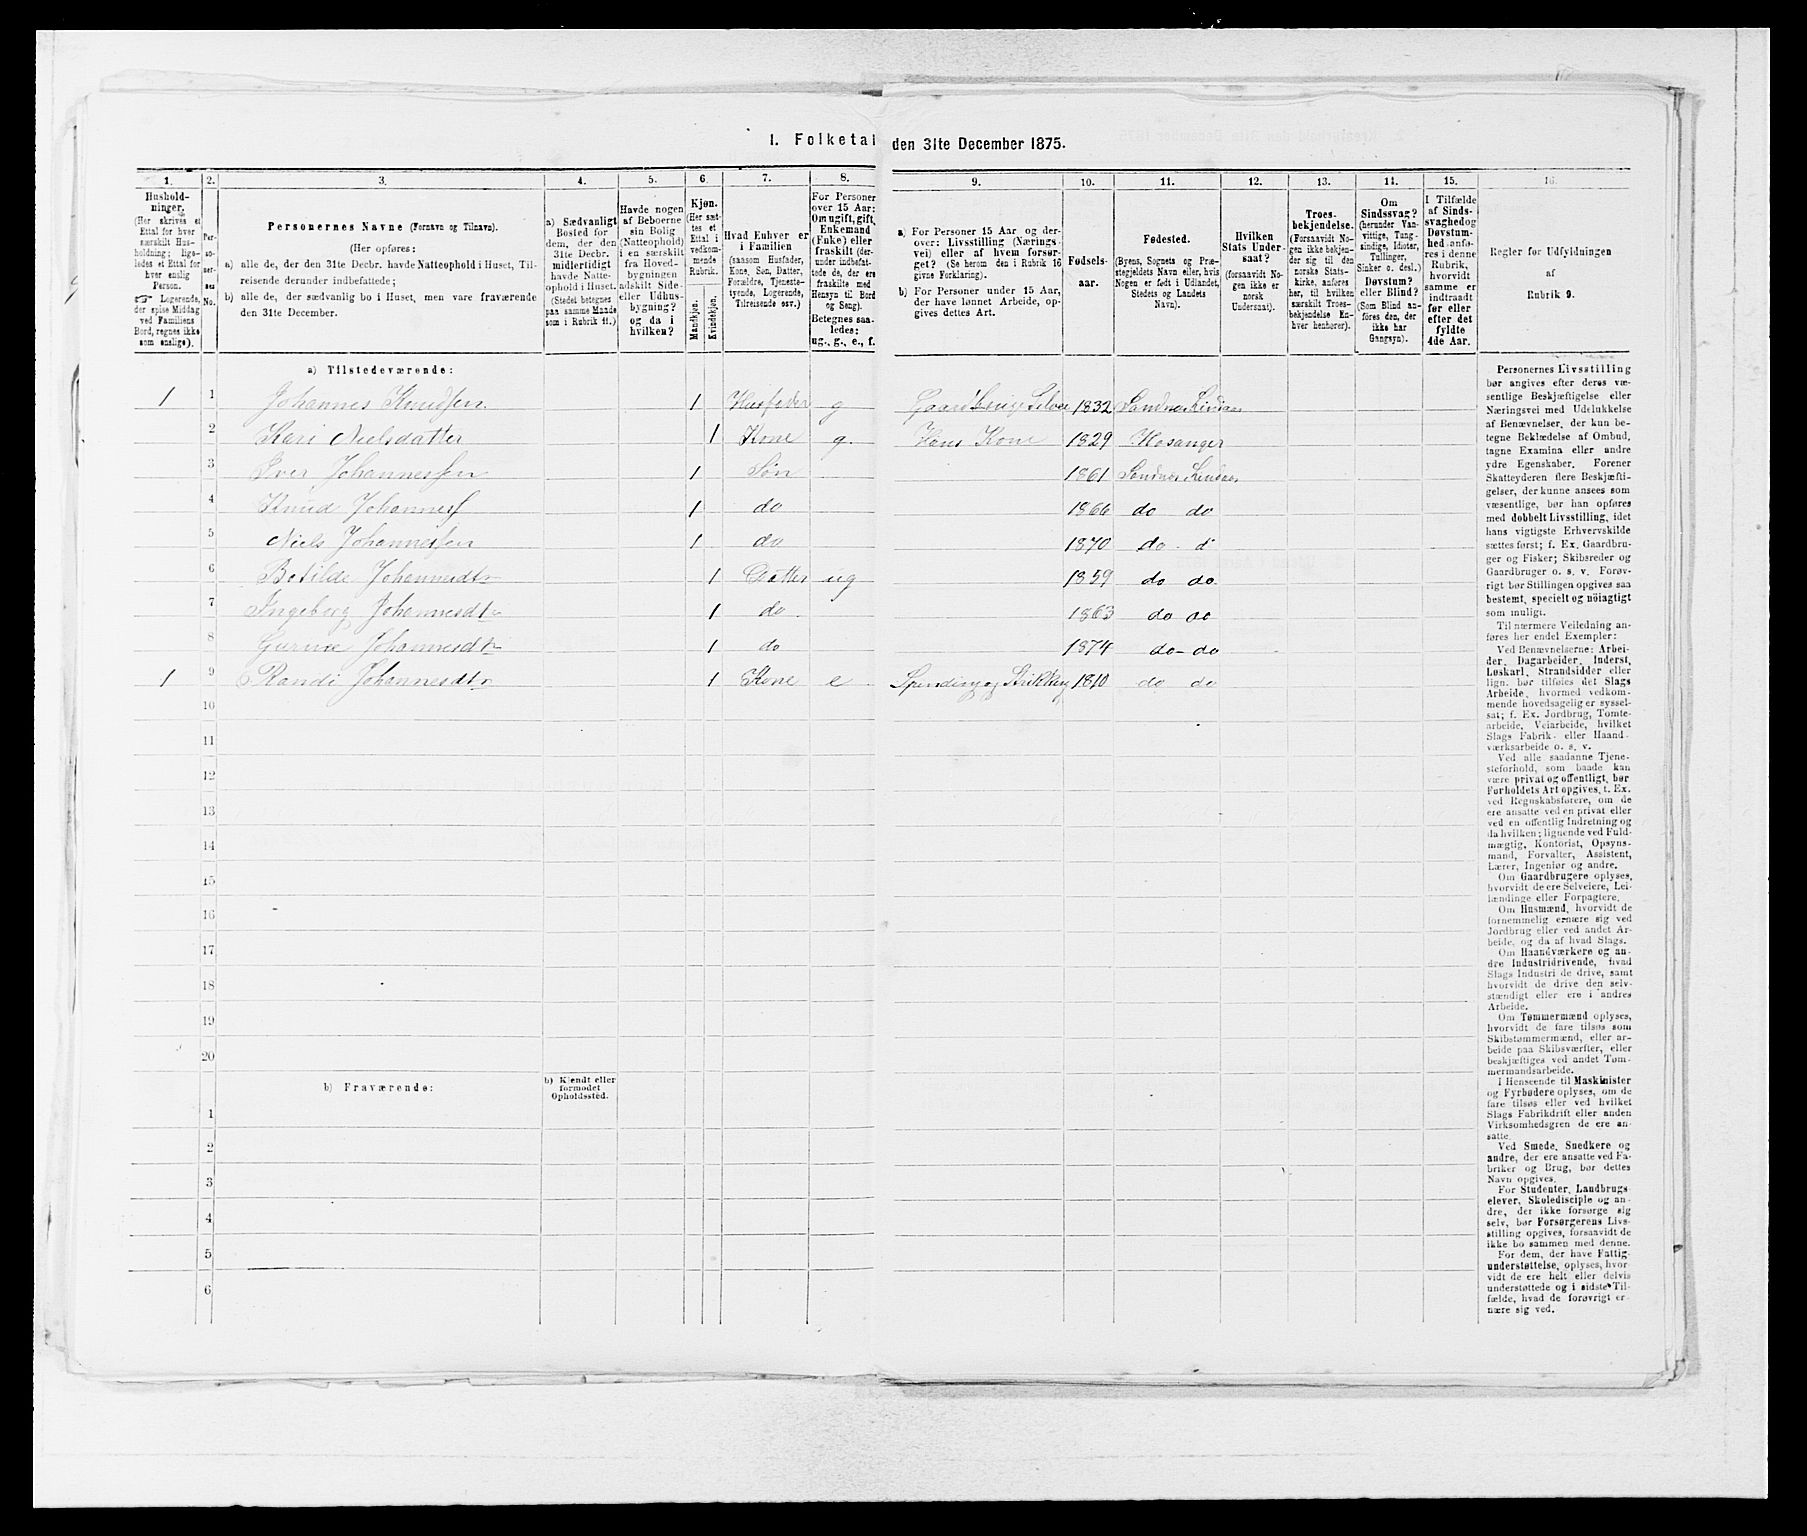 1. Folketal den 31te December 1875.
1. 2. 3. 4. 5. 6. 7. 8. 9. 10. 11. 12. 13. 14. 15. 16.
Hushold-
ninger.
(Her skrives et
Ettal for hver
særskilt Hus-
holdning; lige-
ledes et Ettal for
hver enslig
Person.
☞ Logerende,
der spise Middag
ved Familiens
Bord, regnes ikke
som enslige).
Per-
so-
ner-
nes
No.
Personernes Navne (Fornavn og Tilnavn).
(Her opføres:
a) alle de, der den 31te Decbr. havde Natteophold i Huset, Til-
reisende derunder indbefattede;
b) alle de, der sædvanlig bo i Huset, men vare fraværende
den 31te December.
a) Sædvanligt
Bosted for
dem, der den
31te Decbr.
midlertidigt
havde Natte-
ophold i Huset.
(Stedet betegnes
paa samme Maade
som i Rubrik 11.)
Havde nogen
af Beboerne
sin Bolig
(Natteophold)
i en særskilt
fra Hoved-
bygningen
adskilt Side-
eller Udhus-
bygning?
og da i
hvilken?
Kjøn.
(Her sæt-
tes et
Ettal i
vedkom-
mende
Rubrik.
Mandkjøn.
Kvindekjøn.
Hvad Enhver er
i Familien
(saasom Husfader,
Kone, Søn, Datter,
Forældre, Tjeneste-
tyende, Logerende,
Tilreisende osv.)
For Personer
over 15 Aar:
Om ugift, gift,
Enkemand
(Enke) eller
fraskilt (der-
under indbefat-
tede de, der ere
fraskilte med
Hensyn til Bord
og Seng).
Betegnes saa-
ledes:
ug., g., e., f.
a) For Personer 15 Aar og der-
over: Livsstilling (Nærings-
vei) eller af hvem forsør-
get? (Se herom den i Rubrik 16
givne Forklaring).
b) For Personer under 15 Aar,
der have lønnet Arbeide, op-
gives dettes Art.
Fødsels-
aar.
Fødested.
(Byens, Sognets og Præ-
stegjeldets Navn eller, hvis
Nogen er født i Udlandet,
Stedets og Landets
Navn).
Hvilken
Stats Under-
saat?
(forsaavidt No-
gen ikke er
norsk
Undersaat).
Troes-
bekjendelse.
(Forsaavidt No-
gen ikke bekjen-
der sig til den
norske Stats-
kirke, anføres
her, til hvilken
særskilt Troes-
bekjendelse En-
hver henhører).
Om
Sindssvag?
(herunder Van-
vittige, Tung-
sindige, Idioter,
Tullinger,
Sinker o. desl.)
Døvstum?
eller Blind?
(Som Blind an-
føres den, der
ikke har
Gangsyn).
I Tilfælde
af Sinds-
svaghed og
Døvstum-
hed anfø-
res i denne
Rubrik,
hvorvidt
samme er
indtraadt
før eller
efter det
fyldte
4de Aar.
Regler for Udfyldningen
af
Rubrik 9.
a) Tilstedeværende:
1 1 Johannes Knudsen 1 Husfader g Gaardbruger Selveier 1832 Sandnes Lindaas
2 Kari Nielsdatter 1 Kone g. Hans Kone 1829 Hosanger
3 Iver Johannessen 1 Søn 1861 Sandnes Lindaas
4 Knud Johanness 1 do 1866 do do
5 Niels Johannessen 1 do 1870 do d
6 Botilde Johannesdtr 1 Datter ug 1859 do do
7 Ingeborg Johannesdtr 1 do 1863 do do
8 Johannesdtr 1 do 1874 do do
1 9 Randi Johannesdtr 1 Kone e Spinding og Strikking 1810 do do
10
11
12
13
14
15
16
17
18
19
20
b) Fraværende:
b) Kjendt eller
formodet
Opholdssted.
1
2
3
4
5
6
Personernes Livsstilling
bør angives efter deres væ-
sentlige Beskjæftigelse eller
Næringsvei med Udelukkelse
af Benævnelser, der kun be-
tegne Beklædelse af Ombud,
tagne Examina eller andre
ydre Egenskaber. Forener
Skatteyderen flere Beskjæfti-
gelser, der kunne ansees som
væsentlige, bør han opføres
med dobbelt Livsstilling, idet
hans vigtigste Erhvervskilde
sættes først; f. Ex. Gaardbru-
ger og Fisker; Skibsreder og
Gaardbruger o. s. v. Forøv-
rigt bør Stillingen opgives saa
bestemt, specielt og nöiagtigt
som muligt.
Til nærmere Veiledning an-
føres her endel Exempler:
Ved Benævnelserne: Arbei-
der, Dagarbeider, Inderst,
Løskarl, Strandsidder eller
lign. bør tilføies det Slags
Arbeide, hvormed vedkom-
mende hovedsagelig er syssel-
sat; f. Ex. Jordbrug, Tomte-
arbeide, Veiarbeide, hvilket
Slags Fabrik- eller Haand-
værksarbeide o. s. v.
Ved alle saadanne Tjene-
steforhold, som baade kan
være privat og offentligt, bør
Forholdets Art opgives, f. Ex.
ved Regnskabsførere, om de
ere ansatte ved en privat eller
ved en offentlig Indretning og
da hvilken; lignende ved Fuld-
mægtig, Kontorist, Opsyns-
mand, Forvalter, Assistent,
Lærer, Ingeniør og andre.
Om Gaardbrugere oplyses,
hvorvidt de ere Selveiere, Lei-
lændinge eller Forpagtere.
Om Husmænd, hvorvidt de
fornemmelig ernære sig ved
Jordbrug eller ved andet Ar-
beide, og da af hvad Slags.
Om Haandværkere og an-
dre Industridrivende, hvad
Slags Industri de drive, samt
hvorvidt de drive den selv-
stændigt eller ere i andres
Arbeide.
Om Tømmermænd oplyses,
hvorvidt de fare tilsøs som
Skibstømmermænd, eller ar-
beide paa Skibsværfter, eller
beskjæftiges ved andet Tøm-
mermandsarbeide.
I Henseende til Maskinister
og Fyrbødere oplyses, om de
fare tilsøs eller ved hvilket
Slags Fabrikdrift eller anden
Virksomhedsgren de ere an-
satte.
Ved Smede, Snedkere og
andre, der ere ansatte ved Fa-
briker og Brug, bør dettes
Navn opgives.
For Studenter, Landbrugs-
elever, Skoledisciple og an-
dre, der ikke forsørge sig
selv, bør Forsørgerens Livs-
stilling opgives, forsaavidt de
ikke bo sammen med denne.
For dem, der have Fattig-
understøttelse, oplyses, hvor-
vidt de ere helt eller delvis
understøttede og i sidste Til-
fælde, hvad de forøvrigt er-
nære sig ved.